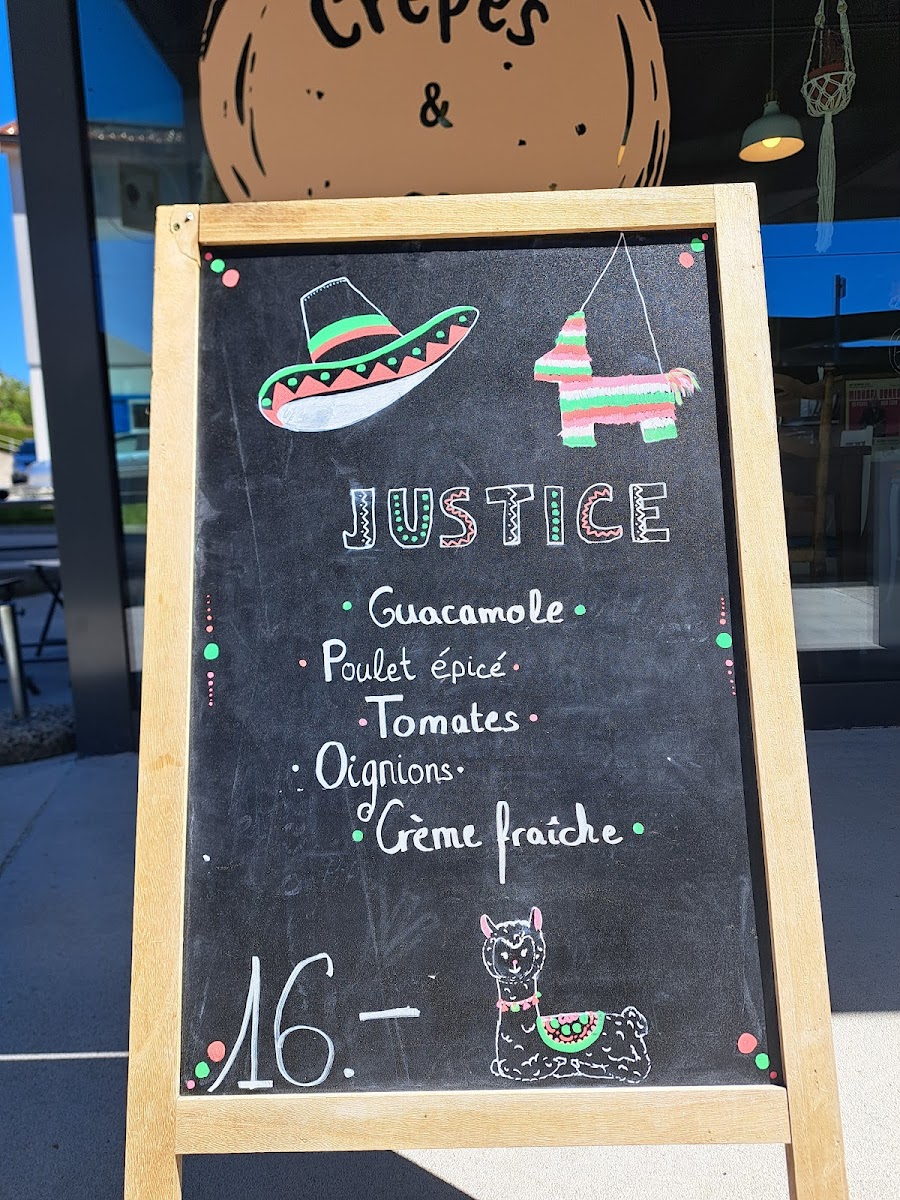 Crêpes
&
JUSTICE
Guacamole
Poulet épicé
Tomates
Oignions
Crème fraîche
16.—